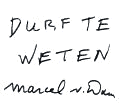 DURF TE
WETEN
Marcel v. Dam